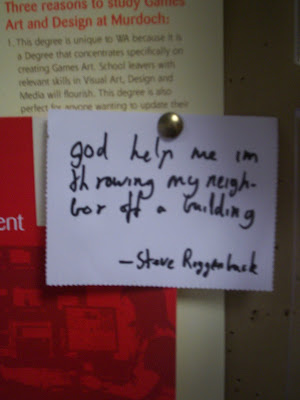 Three reasons to study Games
Art and Design at Murdoch:
1. This degree is unique to WA because it is
a Degree that concentrates specifically on
creating Games Art. School leavers with
relevant skills in Visual Art, Design and
Media will flourish. This degree is also
perfect for anyone wanting to update their
god help me im
throwing my neigh-
bor off a building
—Steve Roggenbuck
ent